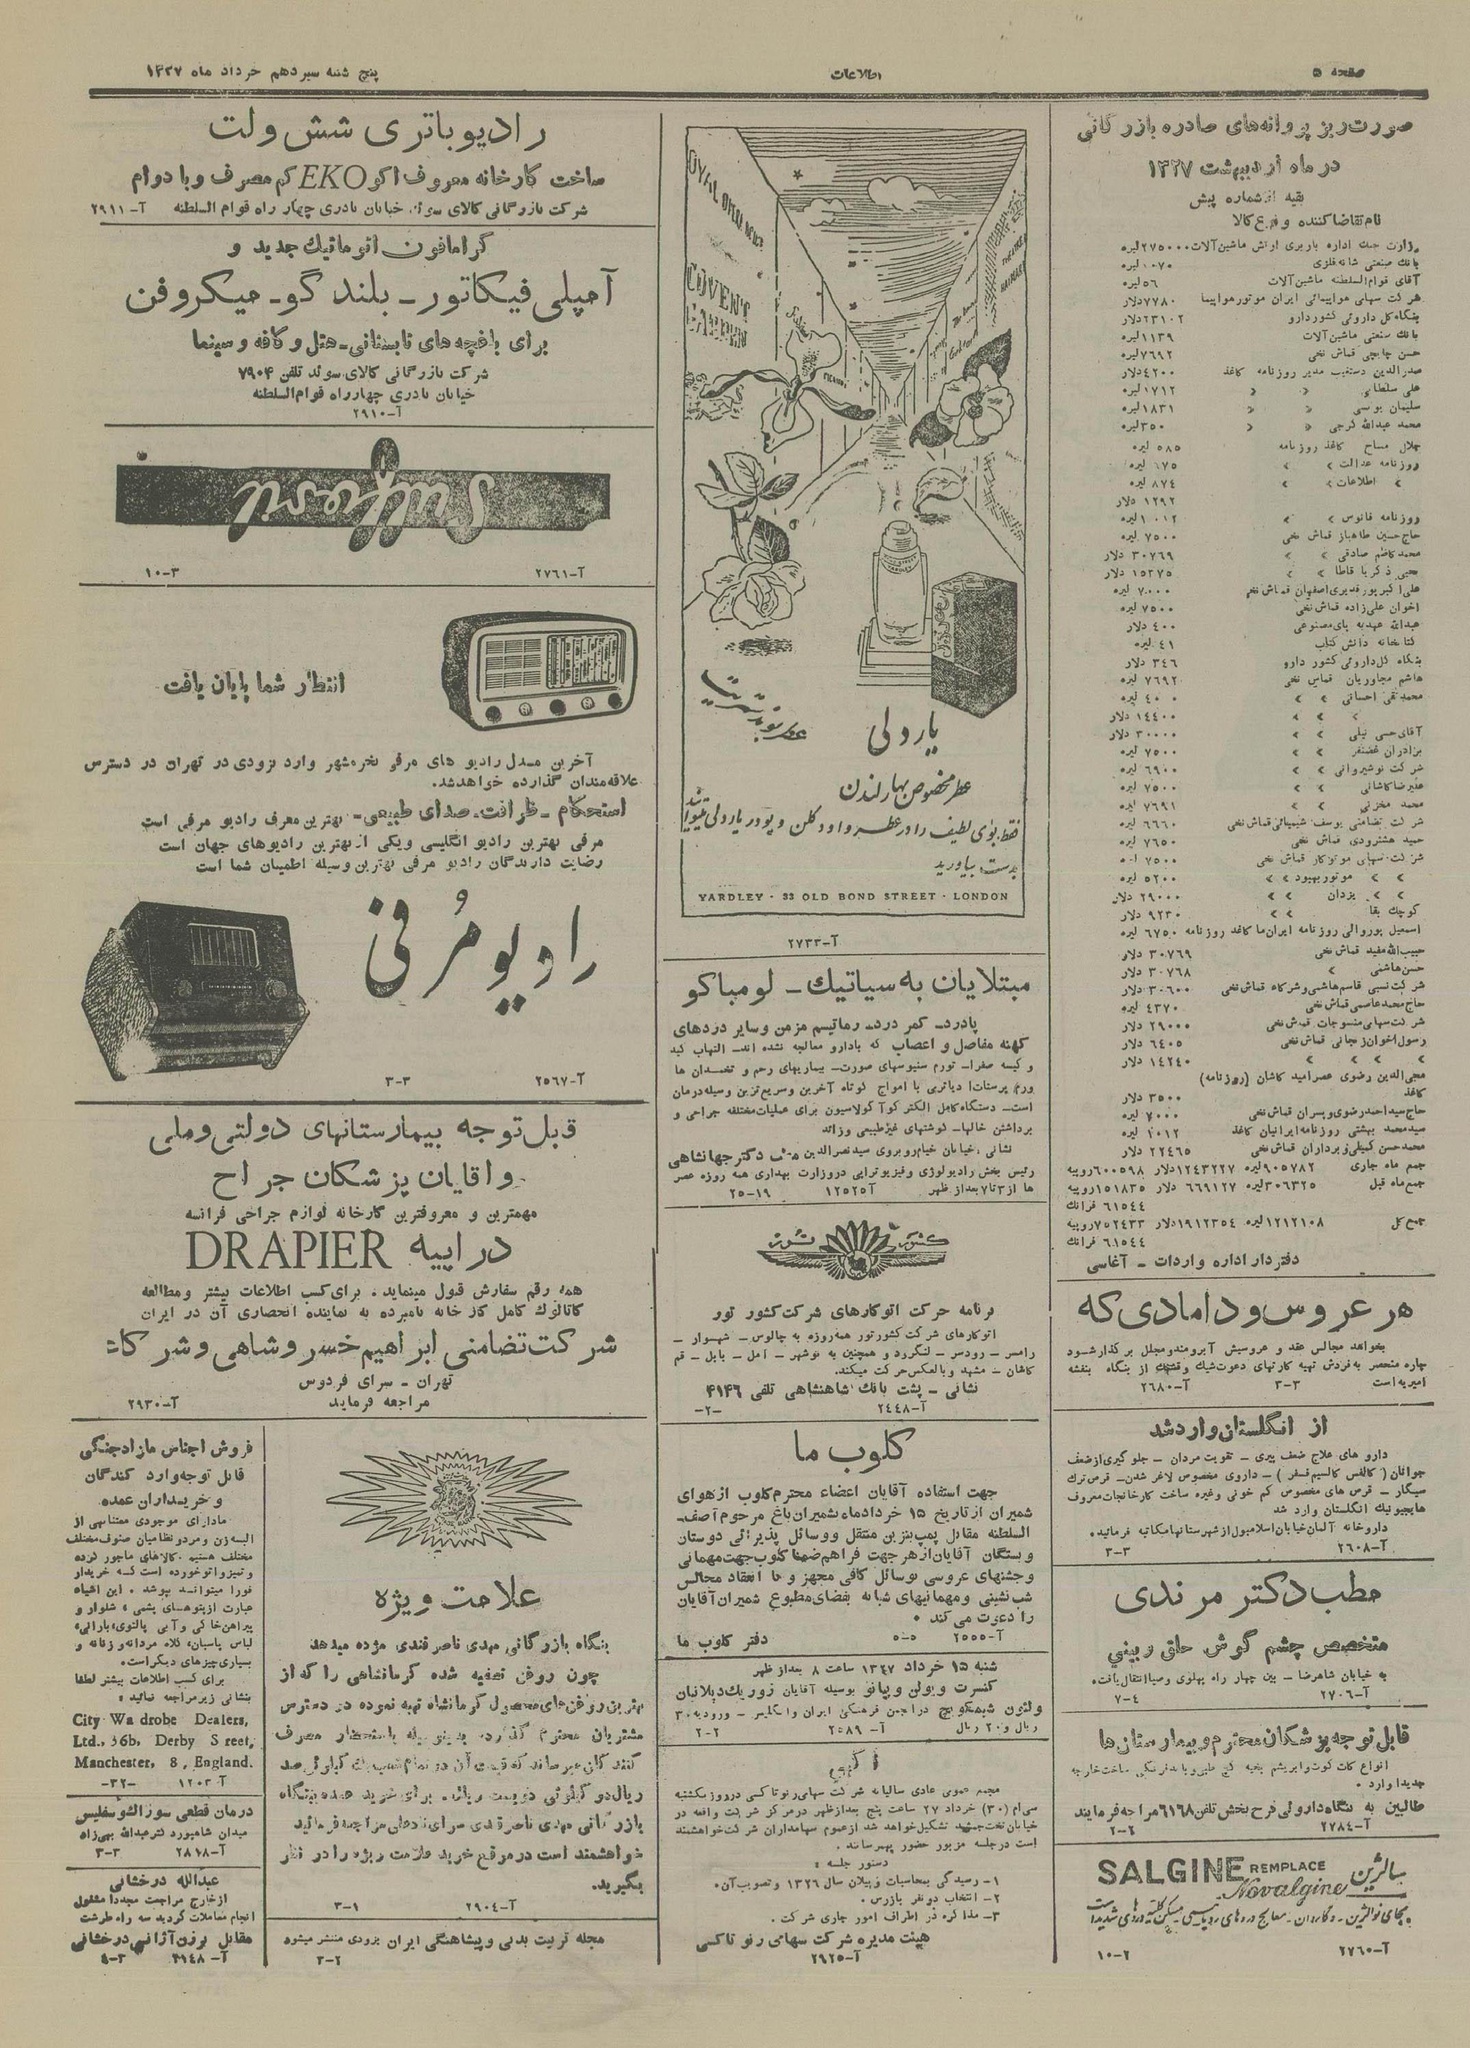 صفحه ۵
اطلاعات
پنج شنبه سیزدهم خرداد ماه ۱۳۲۷
صورت ریز پروانه‌های صادره بازرگانی
در ماه اردیبهشت ۱۳۲۷
بقیه از شماره پیش
نام تقاضا کننده و نوع کالا
وزارت جنگ اداره باربری ارتش ماشین آلات ۲۷۵۰۰۰ لیره
بانک صنعتی شانه فلزی ۱۰۷۰ لیره
آقای قوام السلطنه ماشین آلات ۵۶ لیره
شرکت سهامی هواپیمائی ایران موتور هواپیما ۷۷۸۰ دلار
بنگاه کل داروئی کشور دارو ۲۳۱۰۲ دلار
بانک صنعتی ماشین آلات ۱۱۳۹ لیره
حسن چایچی قماش نخی ۷۶۹۲ لیره
صدرالدین دستغیب مدیر روزنامه کاغذ ۴۲۰۰ دلار
علی سلطانی » » ۱۷۱۲ لیره
سلیمان یوسی » » ۱۸۳۱ لیره
محمد عبدالله گرجی » » ۳۵۰ لیره
جلال مساح کاغذ روزنامه ۵۸۵ لیره
روزنامه عدالت » » ۱۷۵ لیره
» اطلاعات » » ۸۷۴ لیره
۱۲۹۲ دلار
روزنامه فانوس » » ۱۰۱۲ لیره
حاج حسین طاهباز قماش نخی ۷۵۰۰ لیره
محمد کاظم صادقی » » ۳۰۷۶۹ دلار
یحیی ذکریا قاطا » » ۱۵۳۷۵ دلار
علی اکبر پور قدیری اصفهان قماش نخی ۷۰۰۰ لیره
اخوان علی زاده قماش نخی ۷۵۰۰ لیره
عبدالله عهدیه پای مصنوعی ۴۰۰ دلار
کتابخانه دانش کتاب ۴۱ لیره
بنگاه کل داروئی کشور دارو ۳۴۶ دلار
هاشم مجاوریان قماش نخی ۷۶۹۲ لیره
محمد تقی احسانی » » ۴۰۰۰ لیره
» » » ۱۴۴۰۰ دلار
آقای حسن نیلی » » ۳۰۰۰۰ دلار
برادران غضنفر » » ۷۵۰۰ لیره
شرکت نوشیروانی » » ۶۹۰۰ لیره
علیرضا کاشانی » » ۷۵۰۰ لیره
محمد مخزنی » » ۷۶۹۱ لیره
شرکت تضامنی یوسف شیمیائی قماش نخی ۶۶۶۰ لیره
حمید هشترودی قماش نخی ۷۶۵۰ لیره
شرکت سهامی موتوکار قماش نخی ۷۵۰۰ لیره
» » موتور بهبود » » ۵۲۰۰ لیره
» » یزدان » » ۲۹۰۰۰ دلار
کوچک بقا » » ۹۲۳۰ دلار
اسمعیل پوروالی روزنامه ایران ما کاغذ روزنامه ۶۷۵۰ لیره
حبیب الله مفید قماش نخی ۳۰۷۶۹ دلار
حسن هاشمی » ۳۰۷۶۸ دلار
شرکت نسبی قاسم هاشمی و شرکاء قماش نخی ۳۰۶۰۰ دلار
حاج محمد عاصمی قماش نخی ۴۳۷۰ لیره
شرکت سهامی منسوجات قماش نخی ۲۹۰۰۰ دلار
رسول اخوان زنجانی قماش نخی ۶۴۰۵ دلار
» » » » ۱۴۲۴۰ دلار
محی الدین رضوی عصر امید کاشان (روزنامه)
کاغذ ۳۵۰۰ دلار
حاج سید احمد رضوی و پسران قماش نخی ۷۰۰۰ لیره
سید محمد بهشتی روزنامه ایرانیان کاغذ ۱۰۱۲ لیره
محمد حسن کمیلی و برادران قماش نخی ۲۲۴۶۵ دلار
جمع ماه جاری ۹۰۵۷۸۲ لیره ۱۲۴۳۲۲۷ دلار ۶۰۰۵۹۸ روپیه
جمع ماه قبل ۳۰۶۳۲۵ لیره ۶۶۹۱۲۷ دلار ۱۵۱۸۳۵ روپیه
۶۱۵۴۴ فرانک
جمع کل ۱۲۱۲۱۰۸ لیره ۱۹۱۲۳۵۴ دلار ۷۵۲۴۳۳ روپیه
۶۱۵۴۴ فرانک
دفتردار اداره واردات - آغاسی
هر عروس و دامادی که
بخواهد مجالس عقد و عروسیش آبرومند و مجلل برگذار شود
چاره منحصر به فردش تهیه کارتهای دعوت شیک و قشنگ از بنگاه بنفشه
امیریه است ۳-۳ آ-۲۶۸۰
از انگلستان وارد شد
دارو های علاج ضعف پیری - تقویت مردان - جلوگیری از ضعف
جوانان (کالفس کالسیم فسفر) - داروی مخصوص لاغر شدن - قرص ترک
سیگار - قرص های مخصوص کم خونی وغیره ساخت کارخانجات معروف
هایجیونیک انگلستان وارد شد
داروخانه آلمان خیابان اسلامبول از شهرستانها مکاتبه فرمائید.
آ-۲۶۰۸ ۳-۳
مطب دکتر مرندی
متخصص چشم گوش حلق و بینی
به خیابان شاهرضا - بین چهار راه پهلوی و صبا انتقال یافت.
آ-۲۷۰۶ ۴-۷
قابل توجه پزشکان محترم و بیمارستان ها
انواع کات کوت و ابریشم بخیه گچ طبی و باند زشکی ساخت خارجه
جدیدا وارد.
طالبین به بنگاه داروئی فرح بخش تلفن ۶۱۶۸ مراجعه فرمایند
آ-۲۷۸۴ ۶-۲
سالژین SALGINE REMPLACE
Novalgine
بجای نوالژین
آ-۲۷۶۰ ۲-۱۰
ROYAL OPERA HOUSE
COVENT GARDEN
یاردلی
عطر مخصوص بهار لندن
فقط بوی لطیف را در عطر و اودکلن و پودر یاردلی میتوانید
بدست بیاورید
YARDLEY · 33 OLD BOND STREET · LONDON
آ-۲۷۳۳
مبتلایان به سیاتیک - لومباکو
پادرد - کمر درد - رماتیسم مزمن و سایر دردهای
کهنه مفاصل و اعصاب که با دارو معالجه نشده اند - التهاب کبد
و کیسه صفرا - تورم سنیوسهای صورت - بیماریهای رحم و تخمدان ها
ورم پرستات! دیاترمی با امواج کوتاه آخرین و سریع ترین وسیله درمان
است - دستگاه کامل الکتروکوآگولاسیون برای عملیات مختلفه جراحی و
برداشتن خالها - گوشتهای غیر طبیعی و زائد
نشانی، خیابان خیام روبروی سید نصرالدین مطب دکتر جهانشاهی
رئیس بخش رادیولوژی و فیزیوتراپی در وزارت بهداری همه روزه عصر
ها از ۳ تا ۷ بعد از ظهر آ ۱۲۵۲۵ ۱۹-۲۵
کشور تور
برنامه حرکت اتوکارهای شرکت کشور تور
اتوکارهای شرکت کشور تور همه روزه به چالوس - شهسوار -
رامسر - رودسر - لنگرود و همچنین به نوشهر - آمل - بابل - قم
کاشان - مشهد و بالعکس حرکت میکند.
نشانی - پشت بانک شاهنشاهی تلفن ۴۱۴۶
آ-۲۴۴۸ -۲-
کلوب ما
جهت استفاده آقایان اعضاء محترم کلوب از هوای
شمیران از تاریخ ۱۵ خرداد ماه بشمیران باغ مرحوم آصف
السلطنه مقابل پمپ بنزین منتقل و وسائل پذیرائی دوستان
و بستگان آقایان از هر جهت فراهم ضمنا کلوب جهت مهمانی
و جشنهای عروسی بوسائل کافی مجهز و با انعقاد مجالس
شب نشینی و مهمانیهای شبانه بفضای مطبوع شمیران آقایان
را دعوت می کند.
آ-۲۵۵۵ ۵-۵ دفتر کلوب ما
شنبه ۱۵ خرداد ۱۳۲۷ ساعت ۸ بعد از ظهر
کنسرت ویولن و پیانو بوسیله آقایان زوریک دیلانیان
در انجمن فرهنگی ایران و انگلیس - ورودیه ۳۰
ریال و ۲۰ ریال آ-۲۵۸۹ ۲-۲
آگهی
مجمع عمومی عادی سالیانه شرکت سهامی رنو تاکسی در روز یکشنبه
سی ام (۳۰) خرداد ۲۷ ساعت پنج بعد از ظهر در مرکز شرکت واقعه در
خیابان تخت جمشید تشکیل خواهد شد از عموم سهامداران شرکت خواهشمند
است در جلسه مزبور حضور بهمرسانند.
دستور جلسه:
۱- رسیدگی بمحاسبات و بیلان سال ۱۳۲۶ و تصویب آن.
۲- انتخاب دو نفر بازرس.
۳- مذاکره در اطراف امور جاری شرکت.
هیئت مدیره شرکت سهامی رنو تاکسی
آ-۲۹۲۵
رادیو باتری شش ولت
ساخت کارخانه معروف اکو EKO کم مصرف و با دوام
شرکت بازرگانی کالای سوئد، خیابان نادری چهار راه قوام السلطنه آ-۲۹۱۱
گرامافون اتوماتیک جدید و
آمپلی فیکاتور - بلند گو - میکروفن
برای باغچه های تابستانی - هتل و کافه و سینما
شرکت بازرگانی کالای سوئد تلفن ۷۹۰۴
خیابان نادری چهارراه قوام السلطنه
آ-۲۹۱۰
آ-۲۷۶۱ ۳-۱۰
انتظار شما پایان یافت
آخرین مدل رادیو های مرفی بخرمشهر وارد بزودی در تهران در دسترس
علاقه مندان گذارده خواهد شد.
استحکام - ظرافت - صدای طبیعی - بهترین معرف رادیو مرفی است
مرفی بهترین رادیو انگلیسی و یکی از بهترین رادیوهای جهان است
رضایت دارندگان رادیو مرفی بهترین وسیله اطمینان شما است
رادیو مُرفی
آ-۲۵۶۷ ۳-۳
قابل توجه بیمارستانهای دولتی و ملی
و اقایان پزشکان جراح
مهمترین و معروفترین کارخانه لوازم جراحی فرانسه
دراپیه DRAPIER
همه رقم سفارش قبول مینماید. برای کسب اطلاعات بیشتر و مطالعه
کاتالوک کامل کارخانه نامبرده به نماینده انحصاری آن در ایران
شرکت تضامنی ابراهیم خسروشاهی و شرکاء
تهران - سرای فردوس
مراجعه فرماید آ-۲۹۳۰
علامت ویژه
بنگاه بازرگانی مهدی ناصر قندی مژده میدهد
چون روغن تصفیه شده کرمانشاهی را که از
بهترین روغن های محصول کرمانشاه تهیه نموده در دسترس
مشتریان محترم گذارده بدینوسیله باستحضار مصرف
کنندگان میرساند که قیمت آن در تمام فصل یک کیلوئی صد
ریال دو کیلوئی دویست ریال. برای خرید عمده به بنگاه
بازرگانی مهدی ناصر قندی مراجعه فرمائید
خواهشمند است در موقع خرید علامت ویژه را در نظر
بگیرید.
آ-۲۹۰۴ ۳-۱
مجله تربیت بدنی و پیشاهنگی ایران بزودی منتشر میشود
۲-۲
فروش اجناس مازاد جنگی
قابل توجه وارد کنندگان
و خریداران عمده
ما دارای موجودی معتنابهی از
البسه زن و مرد و نظامیان صنوف مختلف
مختلف هستیم. کالاهای مأجور کرده
و تمیز و اتو خورده است که خریدار
فورا میتواند بپوشد. این اشیاء
عبارت از پتوهای پشمی، شلوار و
پیراهن خاکی و آبی پالتوی، بارانی،
لباس پاسبان، کلاه مردانه و زنانه و
بسیاری چیزهای دیگر است.
برای کسب اطلاعات بیشتر لطفا
بنشانی زیر مراجعه نمائید:
City Wardrobe Dealers,
Ltd., 36b, Derby Street,
Manchester, 8, England.
آ ۱۲۰۳ -۳۲-
درمان قطعی سوزاک و سفلیس
میدان شاهپور دکتر عبدالله بهی زاد
آ-۲۸۱۸ ۳-۳
عبدالله درخشانی
از خارج مراجعت مجددا مشغول
انجام معاملات گردید سه راه طرشت
مقابل برزن آژانس درخشانی
آ-۳۱۴۸ ۳-۴